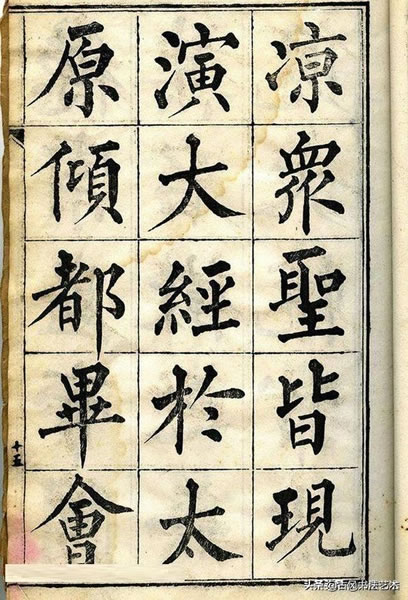 凉衆聖皆現
演大經於太
原傾都畢會
十五
头条@古风书法艺术